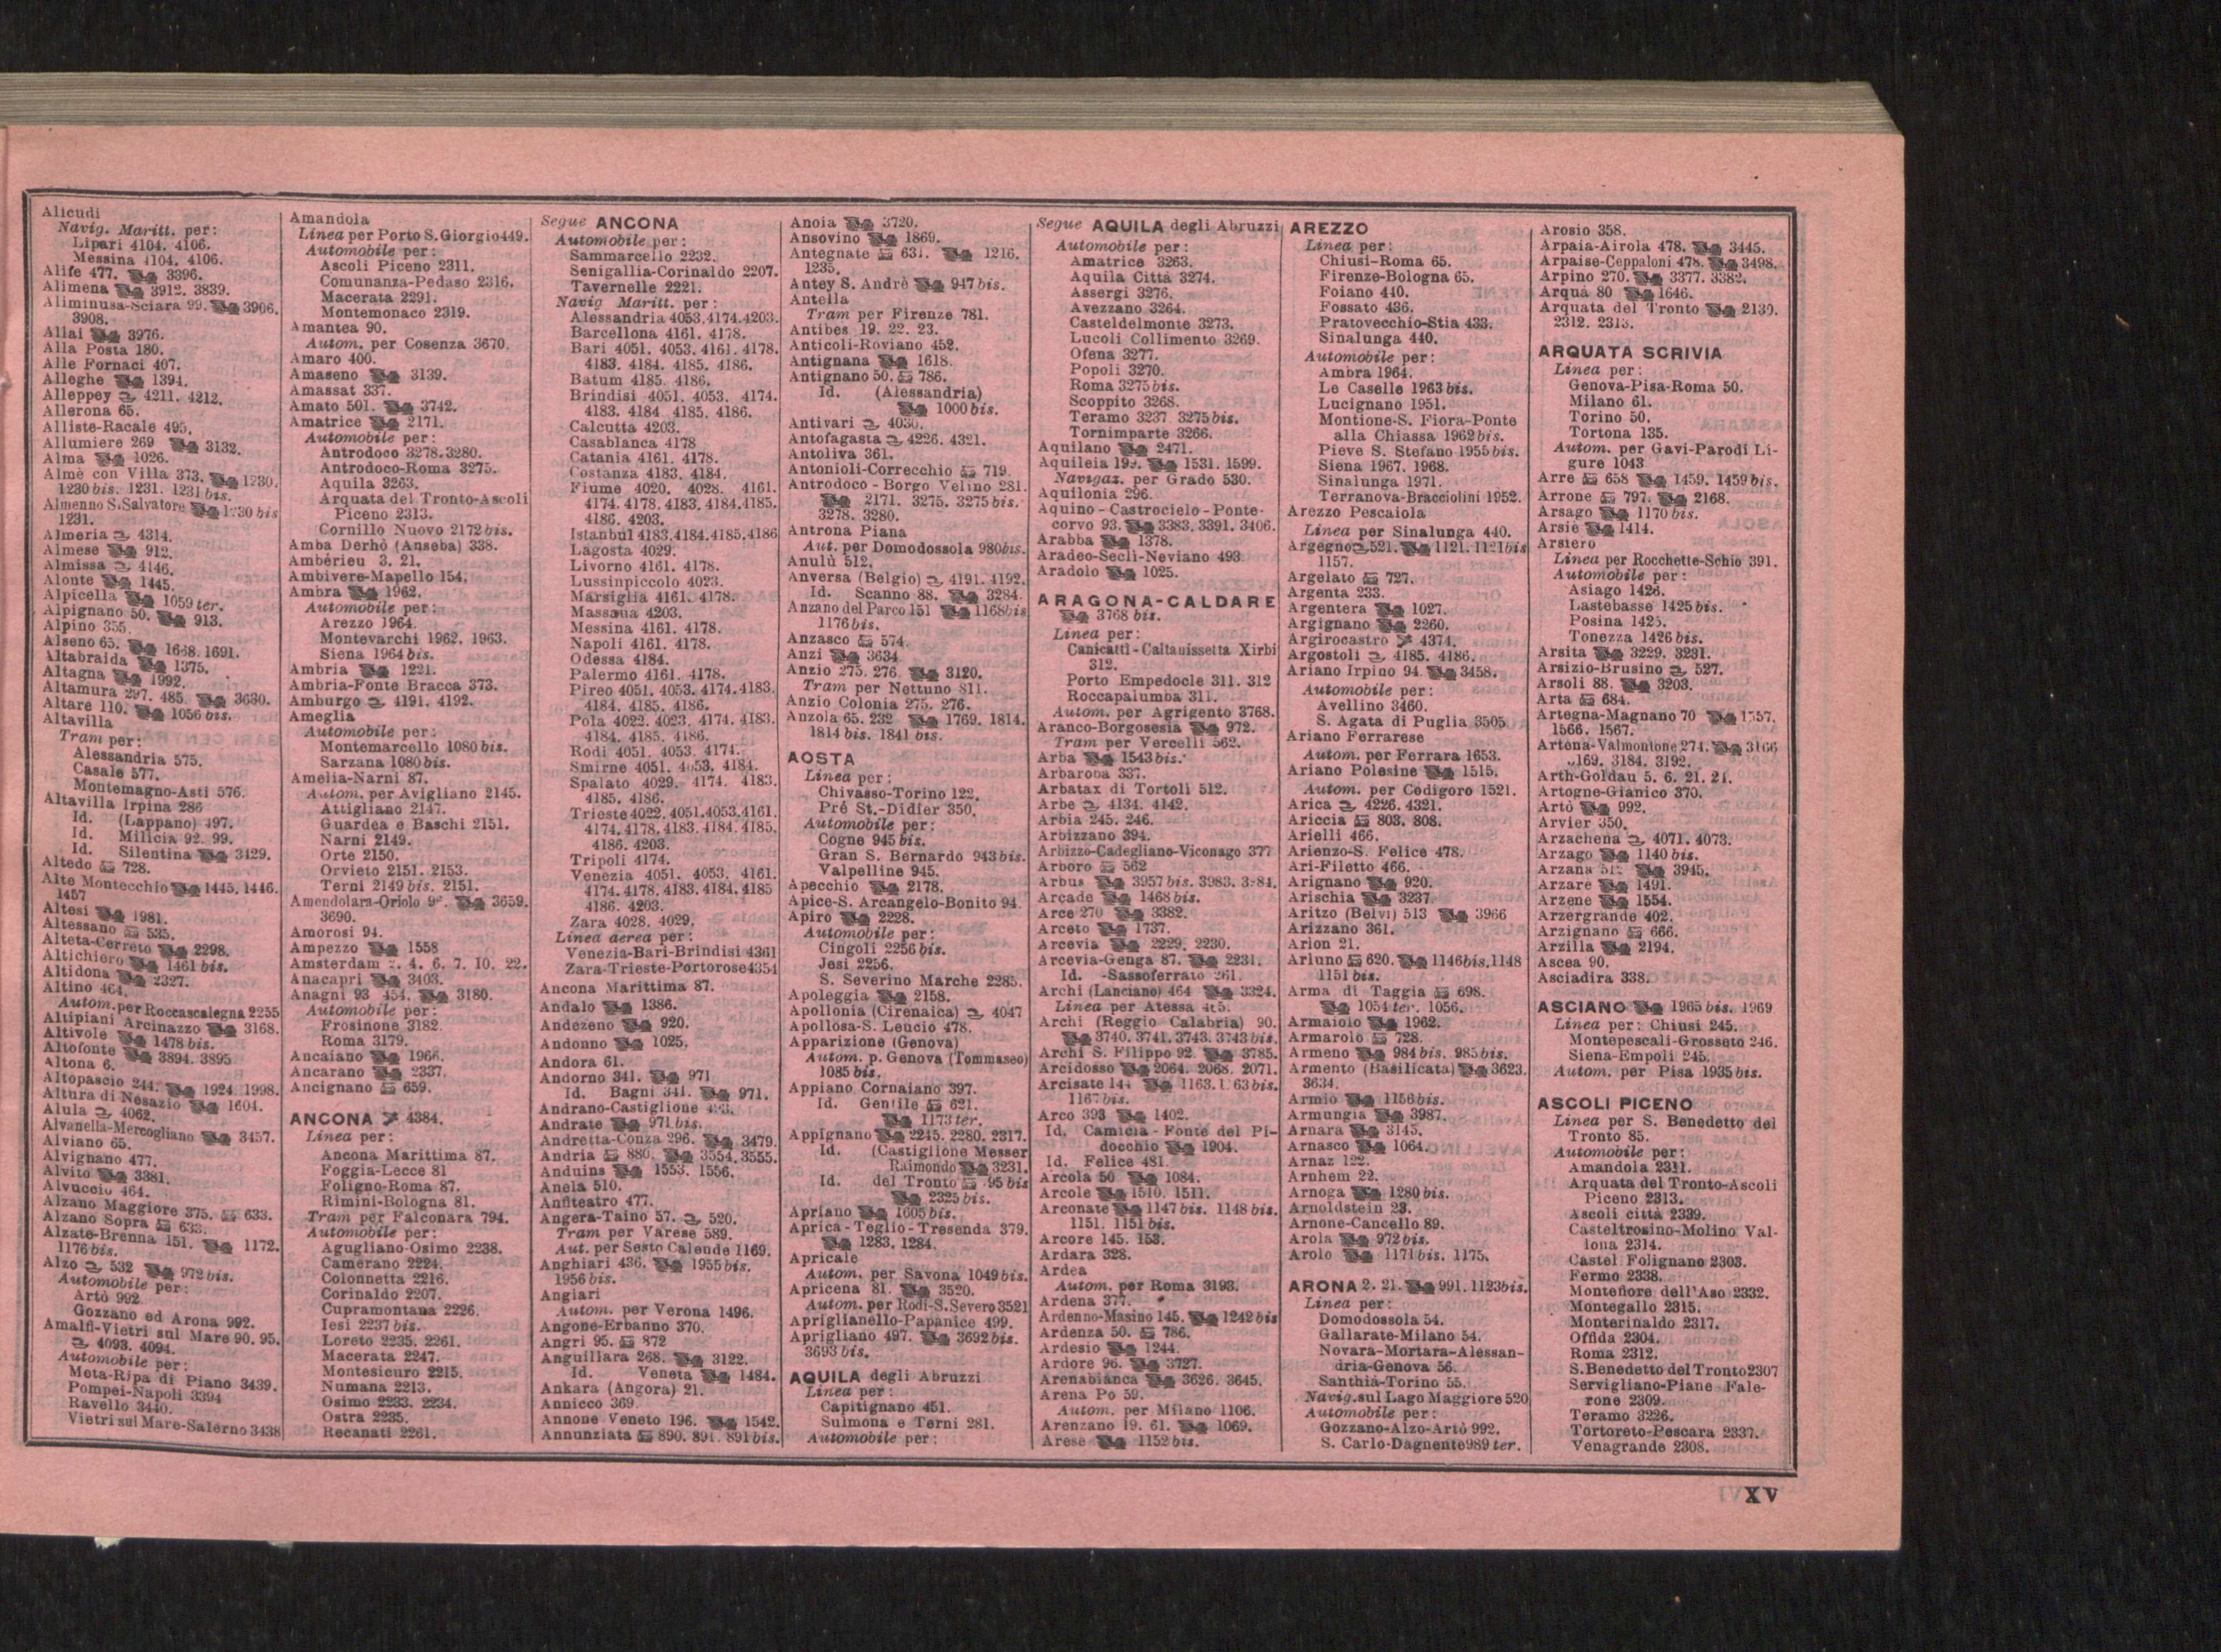 Alicudi
Navig. Maritt. per:
Lipari 4104. 4106.
Messina 4104. 4106.
Alife 477. 3396.
Alimena 3912. 3839.
Aliminusa-Sciara 99. 3906.
3908.
Allai 3976.
Alla Posta 180.
Alle Fornaci 407.
Alleghe 1394.
Alleppey 4211. 4212.
Allerona 65.
Alliste-Racale 495.
Allumiere 269 3132.
Alma 1026.
Almè con Villa 373. 1230.
1230 bis. 1231. 1231 bis.
Almenno S.Salvatore 1230 bis
1231.
Almeria 4314.
Almese 912.
Almissa 4146.
Alonte 1445.
Alpicella 1059 ter.
Alpignano 50. 913.
Alpino 355.
Alseno 65. 1688. 1691.
Altabraida 1375.
Altagna 1992.
Altamura 297. 485. 3630.
Altare 110. 1056 bis.
Altavilla
Tram per:
Alessandria 575.
Casale 577.
Montemagno-Asti 576.
Altavilla Irpina 286
Id. (Lappano) 497.
Id. Milicia 92. 99.
Id. Silentina 3429.
Altedo 728.
Alte Montecchio 1445. 1446.
1457
Altesi 1981.
Altessano 535.
Alteta-Cerreto 2298.
Altichiero 1461 bis.
Altidona 2327.
Altino 464.
Autom. per Roccascalegna 2255
Altipiani Arcinazzo 3168.
Altivole 1478 bis.
Altofonte 3894. 3895
Altona 6.
Altopascio 244. 1924. 1998.
Altura di Nesazio 1604.
Alula 4062.
Alvanella-Mercogliano 3457.
Alviano 65.
Alvignano 477.
Alvito 3381.
Alvuccio 464.
Alzano Maggiore 375. 633.
Alzano Sopra 633.
Alzate-Brenna 151. 1172.
1176 bis.
Alzo 532 972 bis.
Automobile per:
Artò 992
Gozzano ed Arona 992.
Amalfi-Vietri sul Mare 90. 95.
4093. 4094.
Automobile per:
Meta-Ripa di Piano 3439.
Pompei-Napoli 3394
Ravello 3440.
Vietri sul Mare-Salerno 3438
Amandola
Linea per Porto S. Giorgio 449.
Automobile per:
Ascoli Piceno 2311.
Comunanza-Pedaso 2316.
Macerata 2291.
Montemonaco 2319.
Amantea 90.
Autom. per Cosenza 3670.
Amaro 400.
Amaseno 3139.
Amassat 337.
Amato 501. 3742.
Amatrice 2171.
Automobile per:
Antrodoco 3278. 3280.
Antrodoco-Roma 3275.
Aquila 3263.
Arquata del Tronto-Ascoli
Piceno 2313.
Cornillo Nuovo 2172 bis.
Amba Derhò (Anseba) 338.
Ambérieu 3. 21.
Ambivere-Mapello 154.
Ambra 1962.
Automobile per:
Arezzo 1964.
Montevarchi 1962. 1963.
Siena 1964 bis.
Ambria 1221.
Ambria-Fonte Bracca 373.
Amburgo 4191. 4192.
Ameglia
Automobile per:
Montemarcello 1080 bis.
Sarzana 1080 bis.
Amelia-Narni 87.
Autom. per Avigliano 2145.
Attigliano 2147.
Guardea e Baschi 2151.
Narni 2149.
Orte 2150.
Orvieto 2151. 2153.
Terni 2149 bis. 2151.
Amendolara-Oriolo 3659.
3690.
Amorosi 94.
Ampezzo 1558
Amsterdam 4. 6. 7. 10. 22.
Anacapri 3403.
Anagni 93 454. 3180.
Automobile per:
Frosinone 3182.
Roma 3179.
Ancaiano 1966.
Ancarano 2337.
Ancignano 659.
ANCONA 4384.
Linea per:
Ancona Marittima 87.
Foggia-Lecce 81
Foligno-Roma 87.
Rimini-Bologna 81.
Tram per Falconara 794.
Automobile per:
Agugliano-Osimo 2238.
Camerano 2224.
Colonnetta 2216.
Corinaldo 2207.
Cupramontana 2226.
Iesi 2237 bis.
Loreto 2235. 2261.
Macerata 2247.
Montesicuro 2215.
Numana 2213.
Osimo 2233. 2234.
Ostra 2235.
Recanati 2261.
Segue ANCONA
Automobile per:
Sammarcello 2232.
Senigallia-Corinaldo 2207.
Tavernelle 2221.
Navig Maritt. per:
Alessandria 4053. 4174. 4203.
Barcellona 4161. 4178.
Bari 4051. 4053. 4161. 4178.
4183. 4184. 4185. 4186.
Batum 4185. 4186.
Brindisi 4051. 4053. 4174.
4183. 4184. 4185. 4186.
Calcutta 4203.
Casablanca 4178
Catania 4161. 4178.
Costanza 4183. 4184.
Fiume 4020. 4028. 4161.
4174. 4178. 4183. 4184. 4185.
4186. 4203.
Istanbul 4183. 4184. 4185. 4186
Lagosta 4029.
Livorno 4161. 4178.
Lussinpiccolo 4023.
Marsiglia 4161. 4178.
Massaua 4203.
Messina 4161. 4178.
Napoli 4161. 4178.
Odessa 4184.
Palermo 4161. 4178.
Pireo 4051. 4053. 4174. 4183.
4184. 4185. 4186.
Pola 4022. 4023. 4174. 4183.
4184. 4185. 4186.
Rodi 4051. 4053. 4174.
Smirne 4051. 4053. 4184.
Spalato 4029. 4174. 4183.
4185. 4186.
Trieste 4022. 4051. 4053. 4161.
4174. 4178. 4183. 4184. 4185.
4186. 4203.
Tripoli 4174.
Venezia 4051. 4053. 4161.
4174. 4178. 4183. 4184. 4185
4186. 4203.
Zara 4028. 4029.
Linea aerea per:
Venezia-Bari-Brindisi 4361
Zara-Trieste-Portorose 4354
Ancona Marittima 87.
Andalo 1386.
Andezeno 920.
Andonno 1025.
Andora 61.
Andorno 341. 971
Id. Bagni 341. 971.
Andrano-Castiglione 493.
Andrate 971 bis.
Andretta-Conza 296. 3479.
Andria 880. 3554. 3555.
Anduins 1553. 1556.
Anela 510.
Anfiteatro 477.
Angera-Taino 57. 520.
Tram per Varese 589.
Aut. per Sesto Calende 1169.
Anghiari 436. 1955 bis.
1956 bis.
Angiari
Autom. per Verona 1496.
Angone-Erbanno 370.
Angri 95. 872
Anguillara 268. 3122.
Id. Veneta 1484.
Ankara (Angora) 21.
Annicco 369.
Annone Veneto 196. 1542.
Annunziata 890. 891. 891 bis.
Anoia 3720.
Ansovino 1869.
Antegnate 631. 1216.
1235.
Antey S. Andrè 947 bis.
Antella
Tram per Firenze 781.
Antibes 19. 22. 23.
Anticoli-Roviano 452.
Antignana 1618.
Antignano 50. 786.
Id. (Alessandria)
1000 bis.
Antivari 4030.
Antofagasta 4226. 4321.
Antoliva 361.
Antonioli-Correcchio 719
Antrodoco - Borgo Velino 281.
2171. 3275. 3275 bis.
3278. 3280.
Antrona Piana
Aut. per Domodossola 980 bis.
Anulù 512.
Anversa (Belgio) 4191. 4192.
Id. Scanno 88. 3284.
Anzano del Parco 151 1168 bis
1176 bis.
Anzasco 574.
Anzi 3634
Anzio 275. 276. 3120.
Tram per Nettuno 811.
Anzio Colonia 275. 276.
Anzola 65. 232 1769. 1814.
1814 bis. 1841 bis.
AOSTA
Linea per:
Chivasso-Torino 122.
Pré St.-Didier 350.
Automobile per:
Cogne 945 bis.
Gran S. Bernardo 943 bis.
Valpelline 945.
Apecchio 2178.
Apice-S. Arcangelo-Bonito 94.
Apiro 2228.
Automobile per:
Cingoli 2256 bis.
Jesi 2256.
S. Severino Marche 2285.
Apoleggia 2158.
Apollonia (Cirenaica) 4047
Apollosa-S. Leucio 478.
Apparizione (Genova)
Autom. p. Genova (Tommaseo)
1085 bis.
Appiano Cornaiano 397.
Id. Gentile 621.
1173 ter.
Appignano 2245. 2280. 2317.
Id. (Castiglione Messer
Raimondo 3231.
Id. del Tronto 95 bis
2325 bis.
Apriano 1605 bis.
Aprica - Teglio - Tresenda 379.
1283. 1284.
Apricale
Autom. per Savona 1049 bis.
Apricena 81. 3520.
Autom. per Rodi-S.Severo 3521
Apriglianello-Papanice 499.
Aprigliano 497. 3692 bis.
3693 bis.
AQUILA degli Abruzzi
Linea per:
Capitignano 451.
Sulmona e Terni 281.
Automobile per:
Segue AQUILA degli Abruzzi
Automobile per:
Amatrice 3263.
Aquila Città 3274.
Assergi 3276.
Avezzano 3264.
Casteldelmonte 3273.
Lucoli Collimento 3269.
Ofena 3277.
Popoli 3270.
Roma 3275 bis.
Scoppito 3268.
Teramo 3237 3275 bis.
Tornimparte 3266.
Aquilano 2471.
Aquileia 1531. 1599.
Navigaz. per Grado 530.
Aquilonia 296.
Aquino - Castrocielo - Ponte-
corvo 93. 3383. 3391. 3406.
Arabba 1378.
Aradeo-Seclì-Neviano 493
Aradolo 1025.
ARAGONA-CALDARE
3768 bis.
Linea per:
Canicattì - Caltanissetta Xirbi
312.
Porto Empedocle 311. 312
Roccapalumba 311.
Autom. per Agrigento 3768.
Aranco-Borgosesia 972.
Tram per Vercelli 562.
Arba 1543 bis.
Arbaroba 337.
Arbatax di Tortolì 512.
Arbe 4134. 4142.
Arbia 245. 246.
Arbizzano 394.
Arbizzo-Cadegliano-Viconago 377
Arboro 562
Arbus 3957 bis. 3983. 3984.
Arcade 1468 bis.
Arce 270 3382.
Arceto 1737.
Arcevia 2229. 2230.
Arcevia-Genga 87. 2231.
Id. -Sassoferrato 261.
Archi (Lanciano) 464 3324.
Linea per Atessa 465.
Archi (Reggio Calabria) 90.
3740. 3741. 3743. 3743 bis.
Archi S. Filippo 92. 3785.
Arcidosso 2064. 2068. 2071.
Arcisate 144 1163. 1163 bis.
1167 bis.
Arco 393 1402.
Id. Camicia - Fonte del Pi-
docchio 1904.
Id. Felice 481.
Arcola 50 1084.
Arcole 1510. 1511.
Arconate 1147 bis. 1148 bis.
1151. 1151 bis.
Arcore 145. 153.
Ardara 328.
Ardea
Autom. per Roma 3193.
Ardena 377.
Ardenno-Masino 145. 1242 bis
Ardenza 50. 786.
Ardesio 1244.
Ardore 96. 3727.
Arenabianca 3626. 3645.
Arena Po 59.
Autom. per Milano 1106.
Arenzano 19. 61. 1069.
Arese 1152 bis.
AREZZO
Linea per:
Chiusi-Roma 65.
Firenze-Bologna 65.
Foiano 440.
Fossato 436.
Pratovecchio-Stia 433.
Sinalunga 440.
Automobile per:
Ambra 1964.
Le Caselle 1963 bis.
Lucignano 1951.
Montione-S. Fiora-Ponte
alla Chiassa 1962 bis.
Pieve S. Stefano 1955 bis.
Siena 1967. 1968.
Sinalunga 1971.
Terranova-Bracciolini 1952.
Arezzo Pescaiola
Linea per Sinalunga 440.
Argegno 521. 1121. 1121 bis
1157.
Argelato 727.
Argenta 233.
Argentera 1027.
Argignano 2260.
Argirocastro 4374.
Argostoli 4185. 4186.
Ariano Irpino 94 3458.
Automobile per:
Avellino 3460.
S. Agata di Puglia 3505
Ariano Ferrarese
Autom. per Ferrara 1653.
Ariano Polesine 1515.
Autom. per Codigoro 1521.
Arica 4226. 4321.
Ariccia 803. 808.
Arielli 466.
Arienzo-S. Felice 478.
Ari-Filetto 466.
Arignano 920.
Arischia 3237.
Aritzo (Belvì) 513 3966
Arizzano 361.
Arlon 21.
Arluno 620. 1146 bis. 1148
1151 bis.
Arma di Taggia 698.
1054 ter. 1056.
Armaiolo 1962.
Armarolo 728.
Armeno 984 bis. 985 bis.
Armento (Basilicata) 3623.
3634.
Armio 1156 bis.
Armungia 3987.
Arnara 3145.
Arnasco 1064.
Arnaz 122.
Arnhem 22.
Arnoga 1280 bis.
Arnoldstein 23.
Arnone-Cancello 89.
Arola 972 bis.
Arolo 1171 bis. 1175.
ARONA 2. 21. 991. 1123 bis.
Linea per:
Domodossola 54.
Gallarate-Milano 54.
Novara-Mortara-Alessan-
dria-Genova 56.
Santhià-Torino 55.
Navig. sul Lago Maggiore 520
Automobile per:
Gozzano-Alzo-Artò 992.
S. Carlo-Dagnente 989 ter.
Arosio 358.
Arpaia-Airola 478. 3445.
Arpaise-Ceppaloni 478. 3498.
Arpino 270. 3377. 3382.
Arquà 80 1646.
Arquata del Tronto 2139.
2312. 2313.
ARQUATA SCRIVIA
Linea per:
Genova-Pisa-Roma 50.
Milano 61.
Torino 50.
Tortona 135.
Autom. per Gavi-Parodi Li-
gure 1043
Arre 658 1459. 1459 bis.
Arrone 797. 2168.
Arsago 1170 bis.
Arsiè 1414.
Arsiero
Linea per Rocchette-Schio 391.
Automobile per:
Asiago 1426.
Lastebasse 1425 bis.
Posina 1425.
Tonezza 1426 bis.
Arsita 3229. 3231.
Arsizio-Brusino 527.
Arsoli 88. 3203.
Arta 684.
Artegna-Magnano 70 1557.
1566. 1567.
Artena-Valmontone 274. 3166
3169. 3184. 3192.
Arth-Goldau 5. 6. 21. 21.
Artogne-Gianico 370.
Artò 992.
Arvier 350.
Arzachena 4071. 4073.
Arzago 1140 bis.
Arzana 512 3945.
Arzare 1491.
Arzene 1554.
Arzergrande 402.
Arzignano 666.
Arzilla 2194.
Ascea 90.
Asciadira 338.
ASCIANO 1965 bis. 1969
Linea per: Chiusi 245.
Montepescali-Grosseto 246.
Siena-Empoli 245.
Autom. per Pisa 1935 bis.
ASCOLI PICENO
Linea per S. Benedetto del
Tronto 85.
Automobile per:
Amandola 2311.
Arquata del Tronto-Ascoli
Piceno 2313.
Ascoli città 2339.
Casteltrosino-Molino Val-
lona 2314.
Castel Folignano 2303.
Fermo 2338.
Montefiore dell'Aso 2332.
Montegallo 2315.
Monterinaldo 2317.
Offida 2304.
Roma 2312.
S. Benedetto del Tronto 2307
Servigliano-Piane Fale-
rone 2309.
Teramo 3226.
Tortoreto-Pescara 2337.
Venagrande 2308.
XV